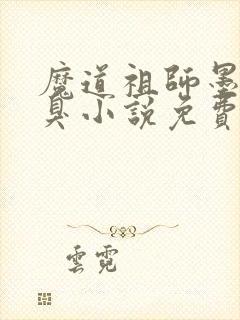 魔道祖師墨
臭小說免費
雲霓